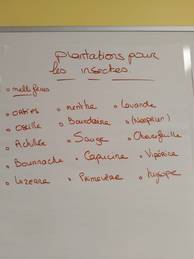 plantations pour
les insectes.
mellifères
orties menthe lavande
oseille Bourdaine
Achillée Sauge Chèvrefeuille
Bourrache Capucine Vipérine
Luzerne Primevère hysope